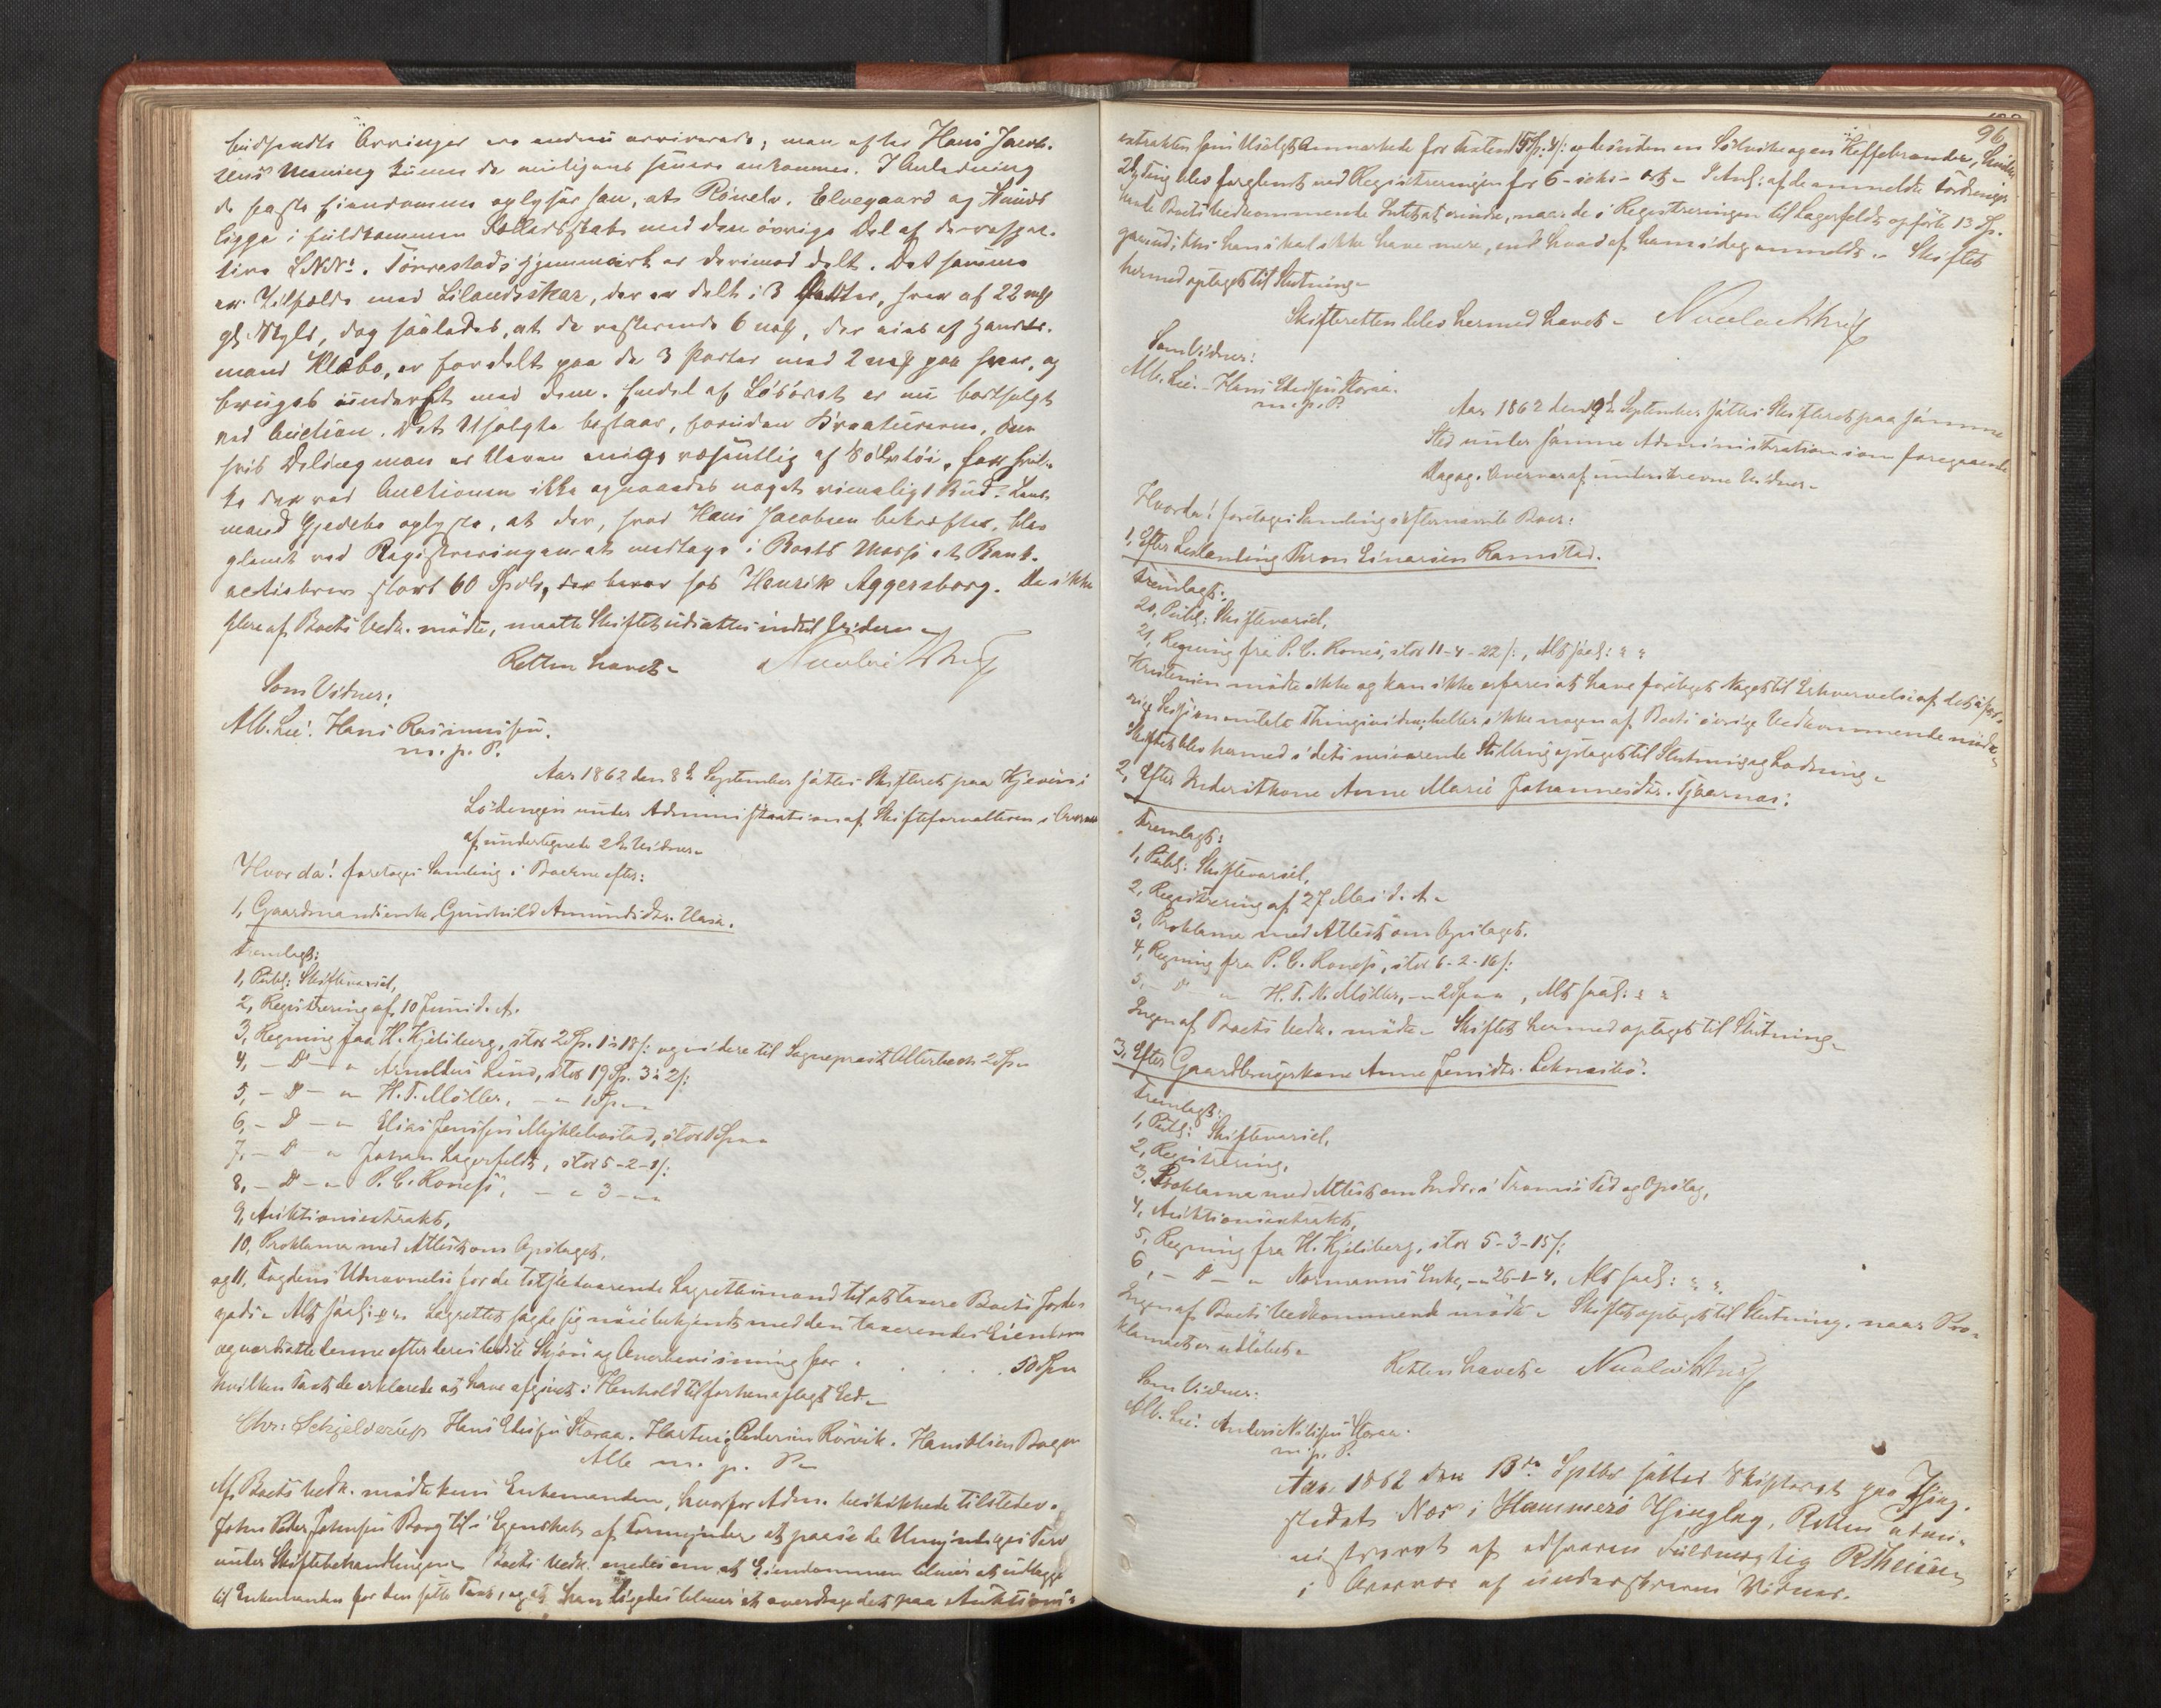 budsendte Arvinger ere endnu arriverede; men efter Hans Jacob-
sens Mening kunne de muligens senere ankomme. I Anledning
de faste Eiendomme oplyser han, at Rönelv, Elvegaard og
ligge i fuldkommen Fællesskab med den övrige Del af de respec-
tive LNNo. Törrestads Hjemmark er derimod delt. Det samme
er Tilfælde med Lilandsskar, der er delt i 3 Parter, hver af 22 mk
gl. Skyld, dog saaledes, at de resterende 6 mk, der eies af Handels-
mand Klæbo, er fordelt paa de 3 Parter med 2 mk paa hver, og
bruges underet med dem. Endel af Lösöret er nu bortsolgt
ved Auction. Det Usolgte bestaar, foruden Kreaturerne, om
hvis Deling man er bleven enige væsentlig af Sölvtöi, for hvil-
ke der ved Auctionen ikke opnaaedes noget rimeligt Bud. Lens-
mand Gjedebo oplyste, at der, hvad Hans Jacobsen bekræfter, blev
glemt ved Registreringen at medtage i Boets Masse et Bank-
actiebrev stort 60 Spdlr, der beror hos Henrik Aggersborg. Da ikke
flere af Boets Vedk. mödte, maatte Skiftet udsættes indtil Videre
Retten hævet Nicolai
Som Vidner:
Alb. Lie. Hans Rasmussen.
m. p. P.
Aar 1862 den 8de September sattes Skifteret paa Kjeöen i
Lödingen under Administration af Skifteforvalteren i Overvær
af undertegnede 2de Vidner
Hvorda! foretoges Samling i Boerne efter:
1, Gaardmandsenke Gunhild Amundsdtr.
Fremlagt:
1, Publ: Skiftevarsel,
2, Registrering af 10 Juni d. A.
3, Regning fra H. Kjelsberg, stor 2 Sp. 1 18/: og videre til Sogneprest 2 Sp
4, - D - " Arnoldus Lind, stor 19 Sp. 3 2/:
5, - D - " H. T. Möller, - 
6, - D - " Elias Jensen Myklebostad, stor
7, - D - " Johan Lagerfeldt, stor 5-2-1/:
8, - D - " P. C. Roness, - " 3 - "
9, Auktionsextrakt,
10, Proklama med Attest om Opslaget.
og 11, Fogdens Udnævnelse for de tilstedeværende Lagrettemænd til at taxere Boets Jorde-
gods. Alt saal: Lagrettet sagde sig nöie bekjendt med den taxerende Eiendom
og værdsatte denne efter deres bedste Skjön og Overbevisning for . . . . 50 Sp
hvilken Taxt de erklærede at have afgivet i Henhold til forhen aflagt Ed.
Chr: Schjelderup Hans Storaa. Hartvig Pedersen Rörvik. Hans Olsen
Alle m. p. P.
Af Boets Vedk. mödte kun Enkemanden, hvorfor Adm. beskikkede tilstedev.
John Peder Johnsen til i Egenskab af Formynder at paase de Umyndiges Tarv
under Skiftebehandlingen. Boets Vedk. enedes om, at Eiendommen bliver at udlægge
til Enkemanden for den satte Taxt, og at han ligeledes bliver at overdrage det paa Auktions-
96
extrakten som Usolgt Anmærkede for Taxten 15 Sp. og desuden en Sölvske og en Kaffebrænder,
2de Ting blev forglemt ved Registreringen for 6 - sex - Ort. I Anl: af de anmeldte Fordringer
havde Boets Vedkommende Intet at erindre, naar de i Registreringen til Lagerfeldt opförte 13 Sp.
thi han skal ikke have mere, end hvad af ham idag anmeldt. Skiftet
hermed optaget til Slutning.
Skifteretten blev hermed hævet. Nicolai
Som Vidner:
Alb. Lie. Hans Storaa.
m. p. P.
Aar 1862 den 9de September sattes Skifteret paa samme
Sted under samme Administration som foregaaende
Dag og i Overvær af underskrevne Vidner.
Hvorda! foretoges Samling i efternævnte Boer:
1, Efter Thron Einarsen Ramstad.
Fremlagt:
20, Publ: Skiftevarsel,
21, Regning fra P. C. Roness, stor 11-4-22/:, Alt saal: " "
Kristensen mödte ikke og kan ikke erfares at have foretaget Noget til Erhvervelse af det
omtalte Thingsvidne; heller ikke nogen af Boets övrige Vedkommende mödte
Skiftet blev hermed i dets nuværende Stilling optaget til Slutning og Lodning
2, Efter Inderstkone Anne Marie Johannesdtr. Tjaarnæs:
Fremlagt:
1, Publ: Skiftevarsel,
2, Registrering af 27 Mai d. A.
3, Proklama med Attest om Opslaget.
4, Regning fra P. C. Roness, stor 6-2-16/:
5, - D " H. T. N. Möller, - " 2 Sp " " , Alt saal: " "
Ingen af Boets Vedk. mödte. Skiftet hermed optaget til Slutning.
3, Efter Gaardbrugerkone Anne Jensdtr.
Fremlagt:
1, Publ: Skiftevarsel,
2, Registrering,
3, Proklama med Attest om Indr. i Tromsö Tid og Opslag,
4, Auktionsextrakt,
5, Regning fra H. Kjelsberg, stor 5-3-15/:
6, - D - " Normanns Enke, - " 26-1-4, Alt saal: " "
Ingen af Boets Vedkommende mödte. Skiftet optaget til Slutning, naar Pro-
klamaet er udlöbet.
Retten hævet. Nicolai
Som Vidner:
Alb. Lie. Anders Nilssen Storaa.
m. p. P.
Aar 1862 den 13de Septbr sattes Skifteret paa Thing-
stedet Næs i Hammerö Thinglag, Retten admi-
nistreret af edsvoren Fuldmægtig
i Overvær af underskrevne Vidner.